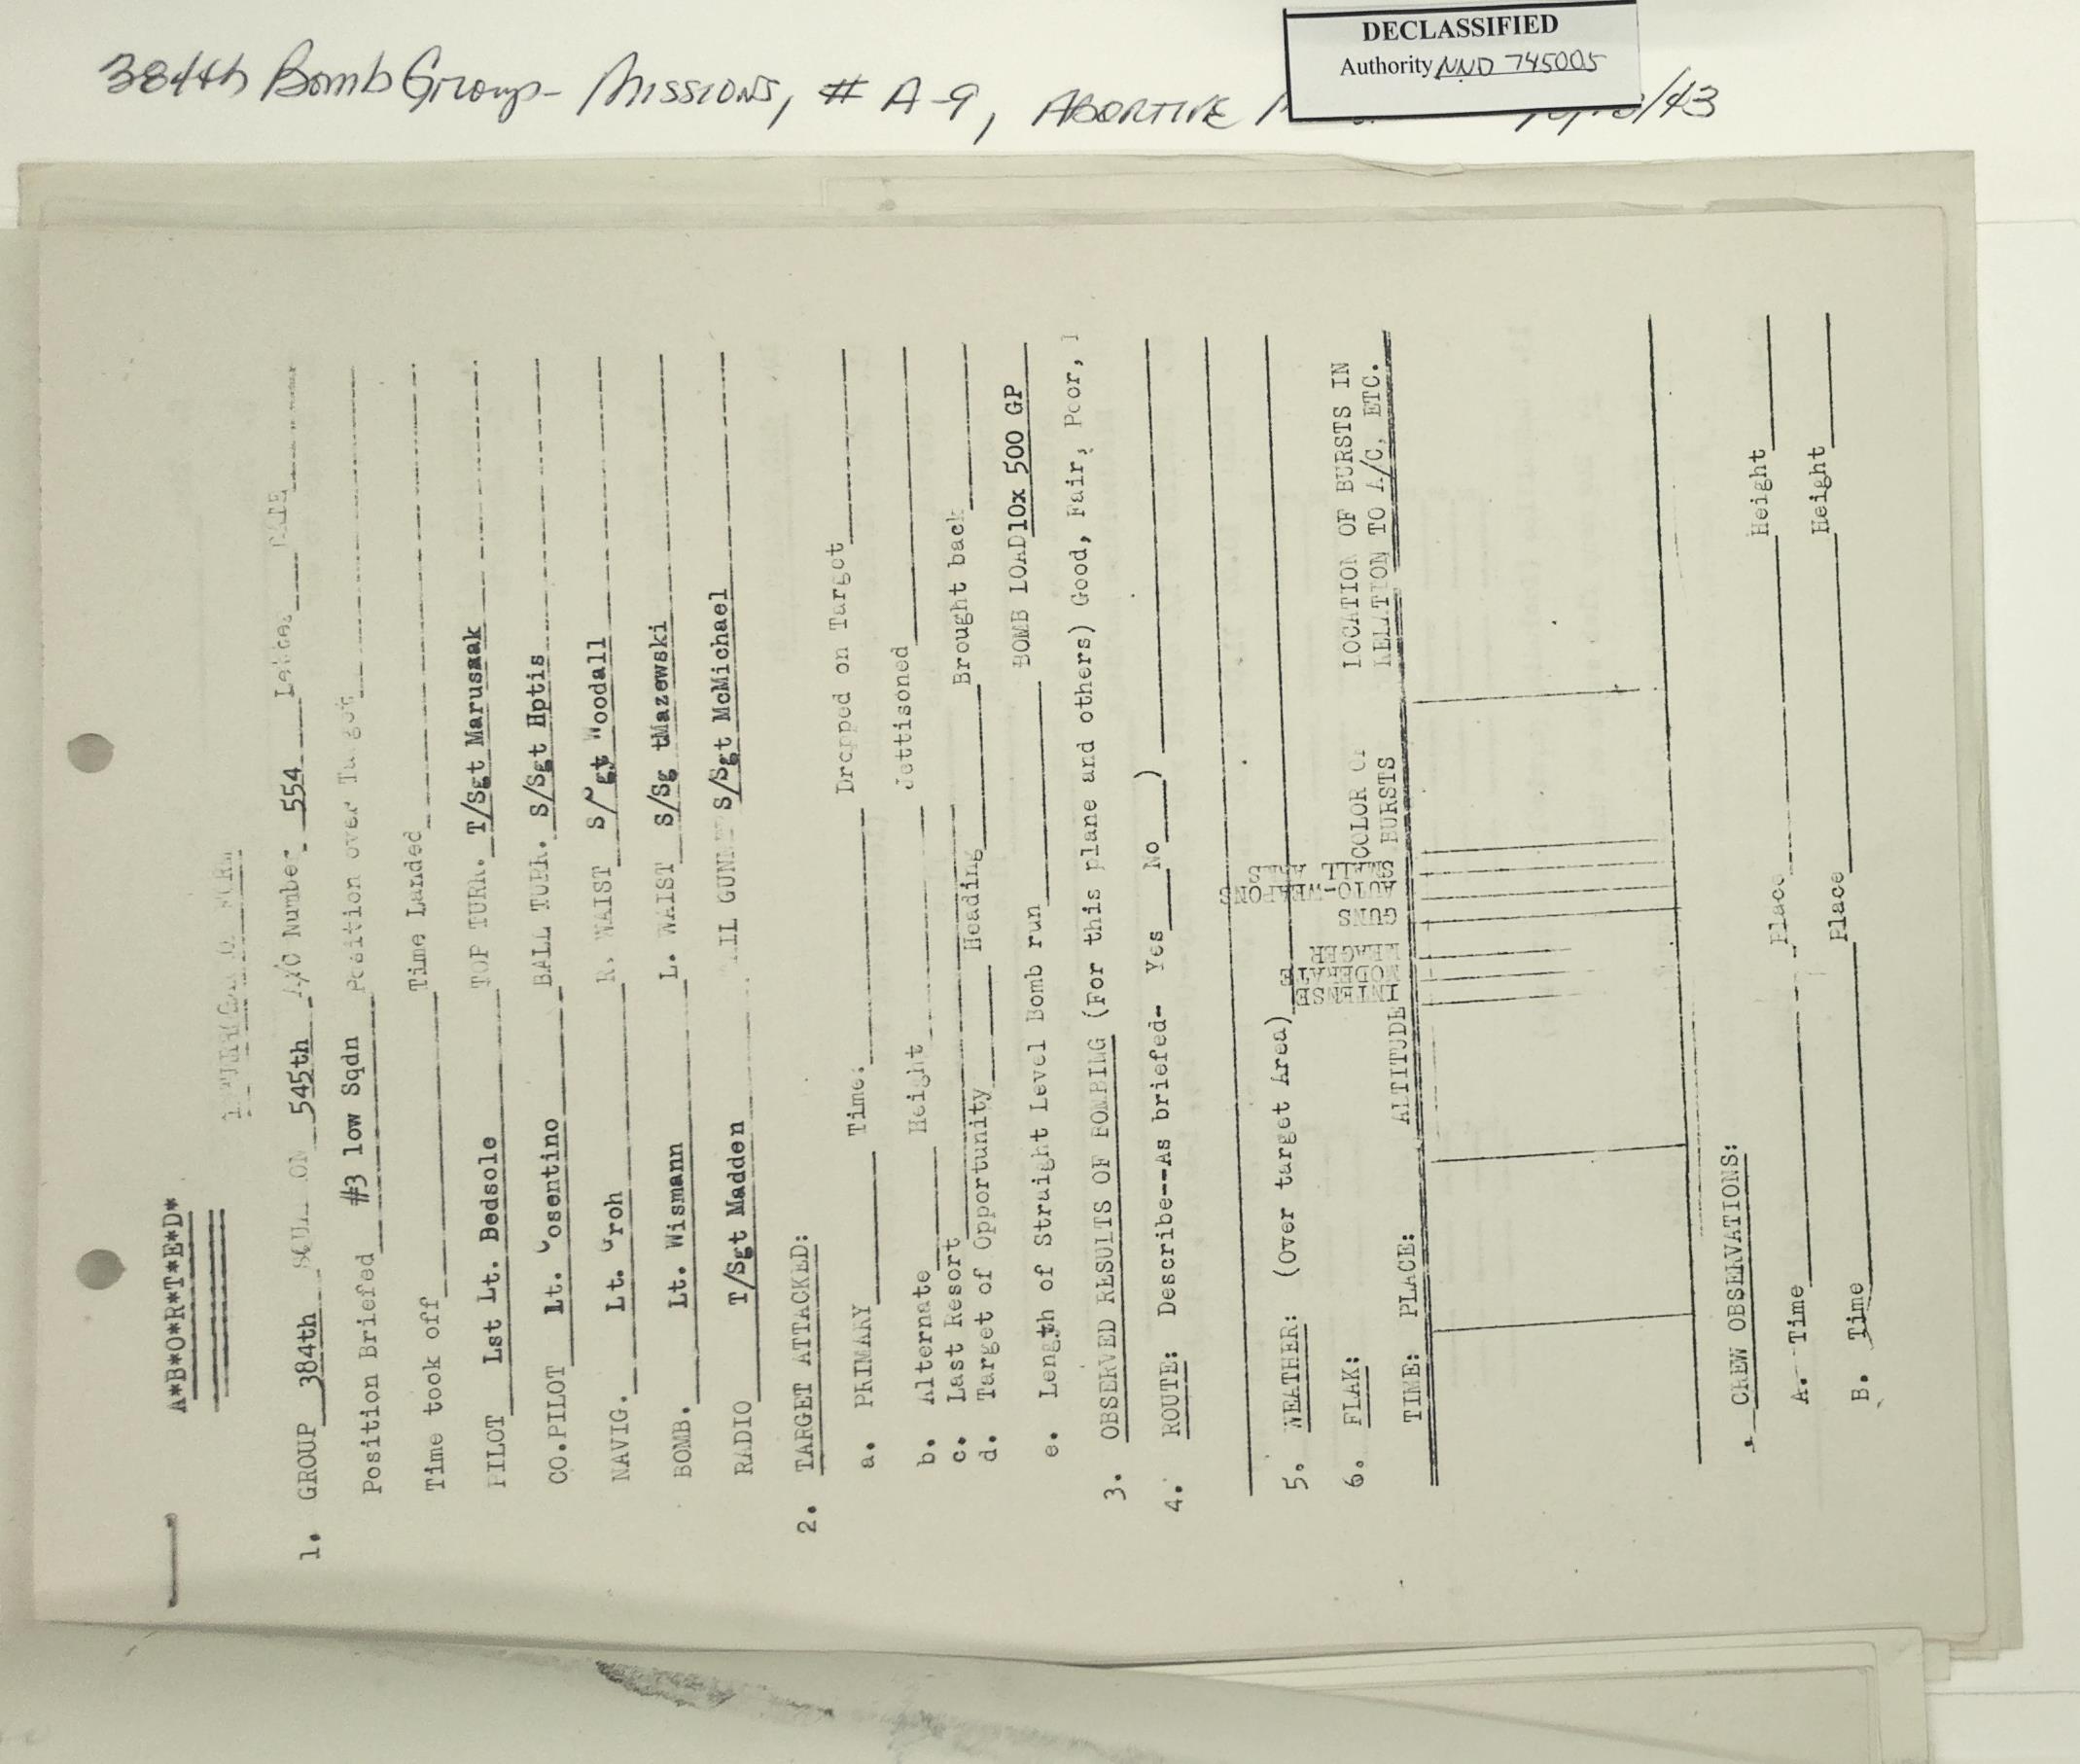 DECLASSIFIED
Authority NND 745005
384th Bomb Group - Missions, # A-9, ABORTIVE /43
A*B*O*R*T*E*D*
1. GROUP 384th 545th A/C Number 554 Letter DATE
Position Briefed #3 low Sqdn Position over Target
Time took off Time Landed
PILOT Lst Lt. Bedsole TOP TURR. T/Sgt Marusmak
CO.PILOT Lt. Cosentino BALL TURR. S/Sgt Hptis
NAVIG. Lt. Groh R. WAIST S/Sgt Woodall
BOMB. Lt. Wismann L. WAIST S/Sg tMazewski
RADIO T/Sgt Madden TAIL GUNNER S/Sgt McMichael
2. TARGET ATTACKED:
a. PRIMARY Time: Dropped on Target
b. Alternate Height Jettisoned
c. Last Resort
d. Target of Opportunity Heading Brought back
e. Length of Straight Level Bomb run BOMB LOAD 10x 500 GP
3. OBSERVED RESULTS OF BOMBING (For this plane and others) Good, Fair, Poor,
4. ROUTE: Describe--As briefed- Yes No )
5. WEATHER: (Over target Area)
6. FLAK:
TIME: PLACE: ALTITUDE INTENSE MODERATE MEAGER GUNS AUTO-WEAPONS COLOR OF BURSTS LOCATION OF BURSTS IN RELATION TO A/C, ETC.
CREW OBSERVATIONS:
A. Time Place Height
B. Time Place Height